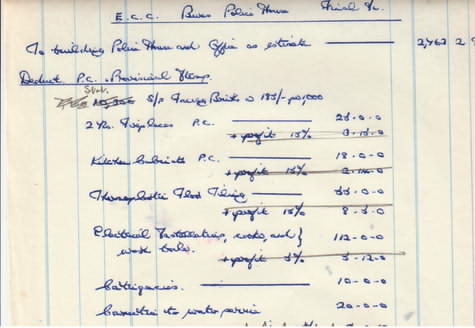 E.C.C. Bures Police House Final A/c.
To building Police House and Office as estimate 2,463 2 9
Deduct P.C. & Provisional Items.
Stok.
S/P Facing Bricks @ 185/- per 1,000
2 No. Fireplaces P.C. 25-0-0
+ profit 15% 3-15-0
Kitchen Cabinets P.C. 18-0-0
+ profit 15% 2-14-0
Thermoplastic Floor Tiling 55-0-0
+ profit 15% 8-5-0
Electrical Installation, cooker, and } 112-0-0
wash boiler.
+ profit 5% 5-12-0
Contingencies. 10-0-0
Connection to water service 20-0-0